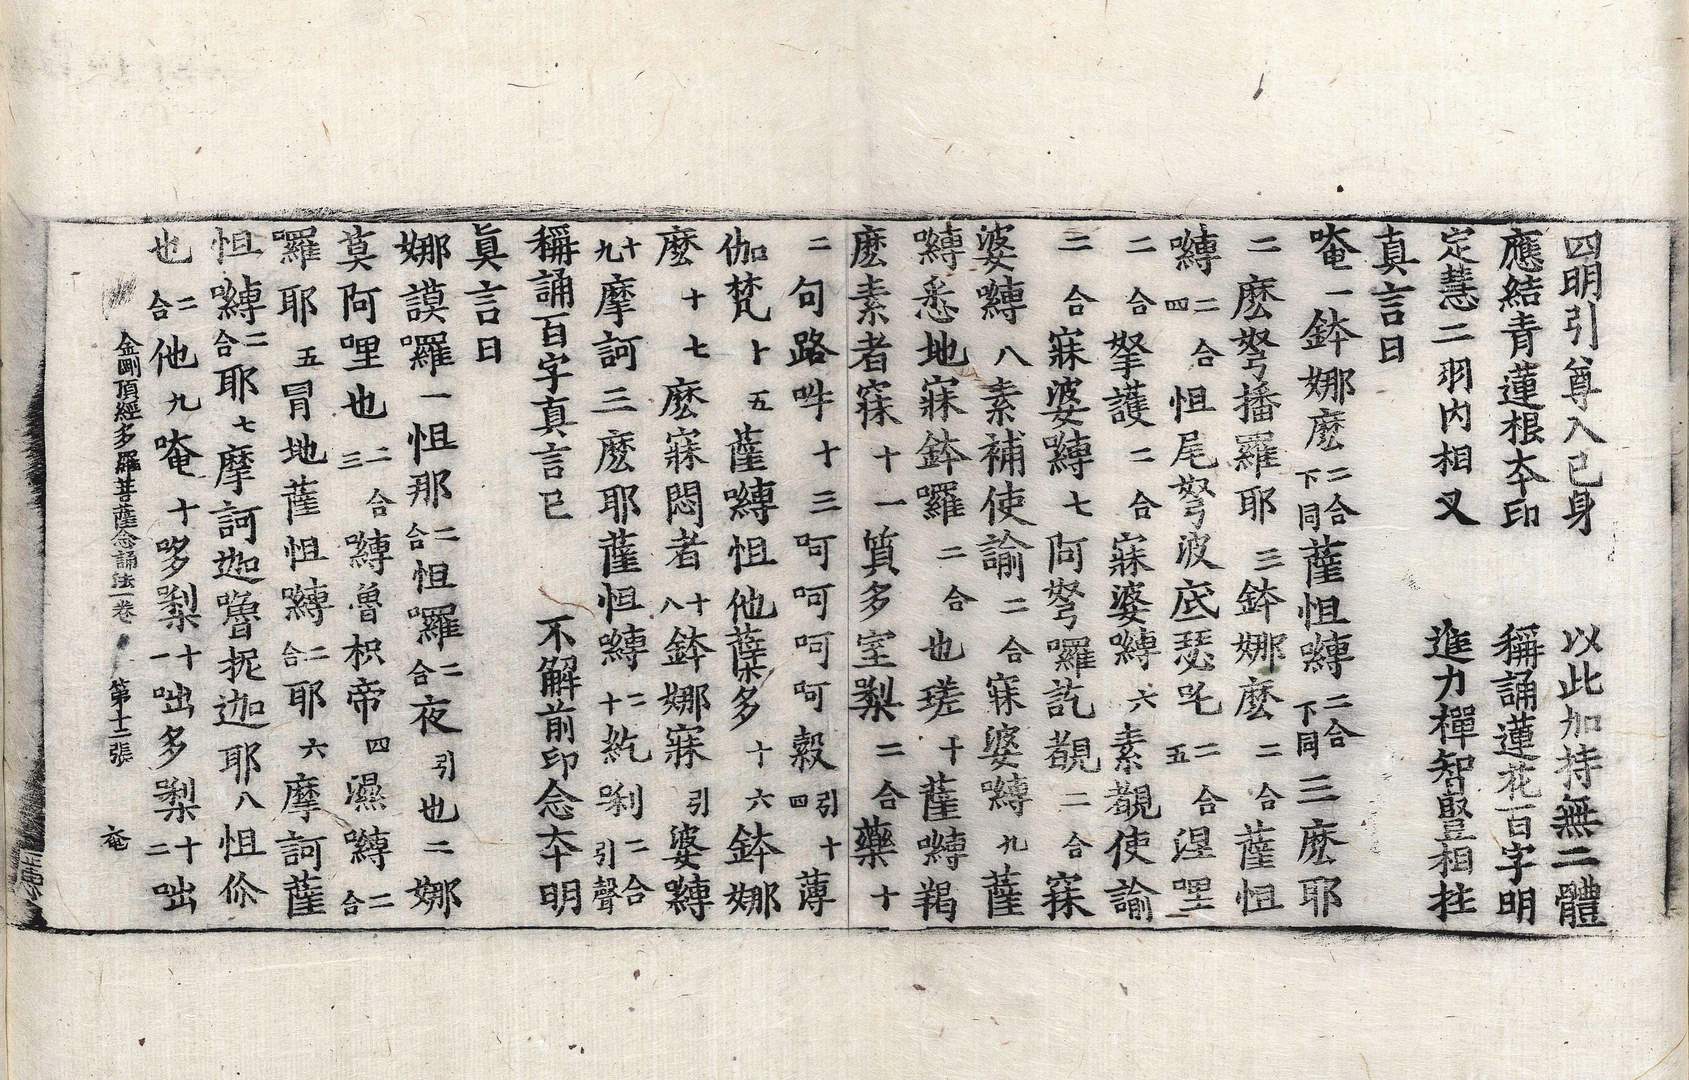 四明引尊入己身　以此加持無二體
應結青蓮根夲印　稱誦蓮花百字明
定慧二羽内相叉　進力禪智豎相拄
真言曰
唵一鉢娜麽二合下同薩怛嚩二合下同三麽耶
二麽弩播羅耶三鉢娜麽二合薩怛
嚩二合四怛尾弩波底瑟吒二合五涅哩
二合拏護二合寐婆嚩六素覩使諭
二合寐婆嚩七阿弩囉訖覩二合寐
婆嚩八素補使諭二合寐婆嚩九薩
嚩悉地寐鉢囉二合也瑳十薩嚩羯
麽素者寐十一質多室梨二合藥十
二句路吽十三呵呵呵呵穀引十四薄
伽梵十五薩嚩怛他蘖多十六鉢娜
麽十七麽寐悶者十八鉢娜寐引婆嚩
十九摩訶三麽耶薩怛嚩二十紇唎二合引聲
稱誦百字真言已　不解前印念夲明
眞言曰
娜謨囉一怛那二合怛囉二合夜引也二娜
莫阿哩也二合三嚩魯枳帝四濕嚩二合
囉耶五冐地薩怛嚩二合耶六摩訶薩
怛嚩二合耶七摩訶迦嚕抳迦耶八怛你
也二合他九唵十哆梨十一咄多梨十二咄
金剛頂經多羅菩薩念誦法一卷　第十二張　菴